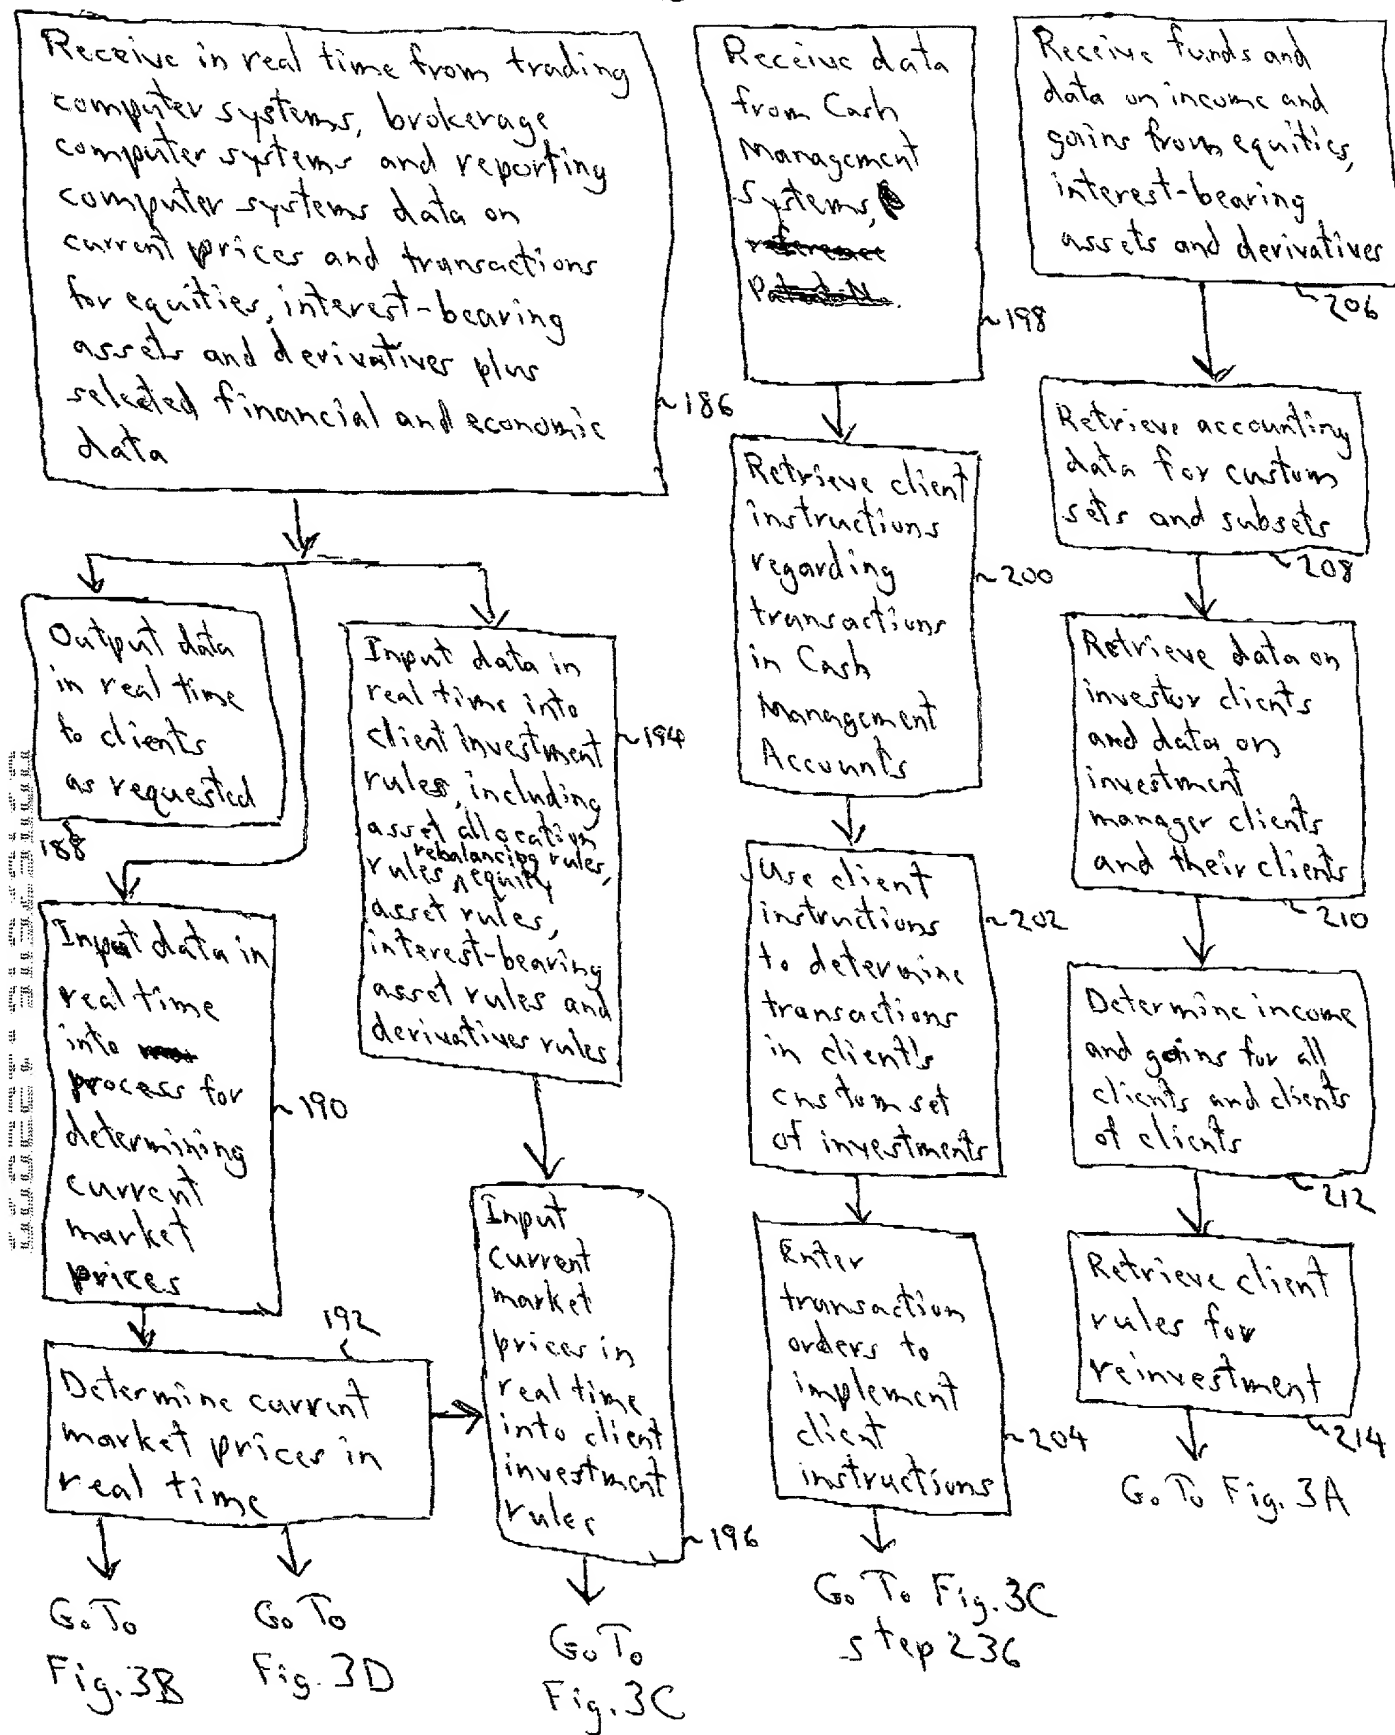 Receive in real time from trading
computer systems, brokerage
computer systems and reporting
computer systems data on
current prices and transactions
for equities, interest-bearing
assets and derivatives plus
selected financial and economic
data
~186
Output data
in real time
to clients
as requested
188
Input data in
real time
into
process for
determining
current
market
prices
~190
192
Determine current
market prices in
real time
Go To
Fig. 3B
Go To
Fig. 3D
Input data in
real time into
client investment
rules, including
asset allocation
rebalancing rules,
rules, equity
asset rules,
interest-bearing
asset rules and
derivatives rules
~194
Input
current
market
prices in
real time
into client
investment
rules
~196
Go To
Fig. 3C
Receive data
from Cash
Management
Systems,
~198
Retrieve client
instructions
regarding
transactions
in Cash
Management
Accounts
~200
Use client
instructions
to determine
transactions
in client's
custom set
of investments
~202
Enter
transaction
orders to
implement
client
instructions
~204
Go To Fig. 3C
step 236
Receive funds and
data on income and
gains from equities,
interest-bearing
assets and derivatives
206
Retrieve accounting
data for custom
sets and subsets
208
Retrieve data on
investor clients
and data on
investment
manager clients
and their clients
210
Determine income
and gains for all
clients and clients
of clients
212
Retrieve client
rules for
reinvestment
214
Go To Fig. 3A